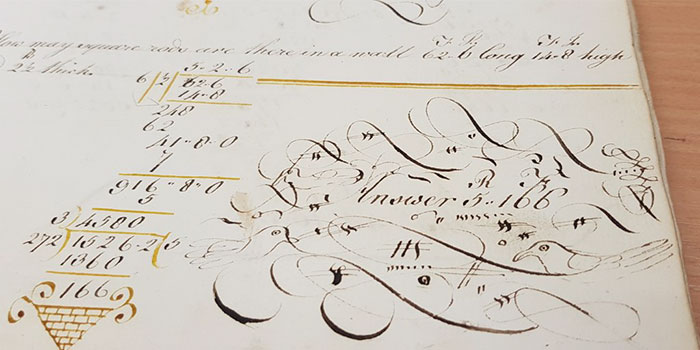 How many square rods are there in a wall 62-6 long 14-8 high
2½ thick
5-2-6
6 62-6
14-8
248
62
41-8-0
7
916-8-0
5
3)4580
272)1526-2(5
1360
166
Answer 5-166